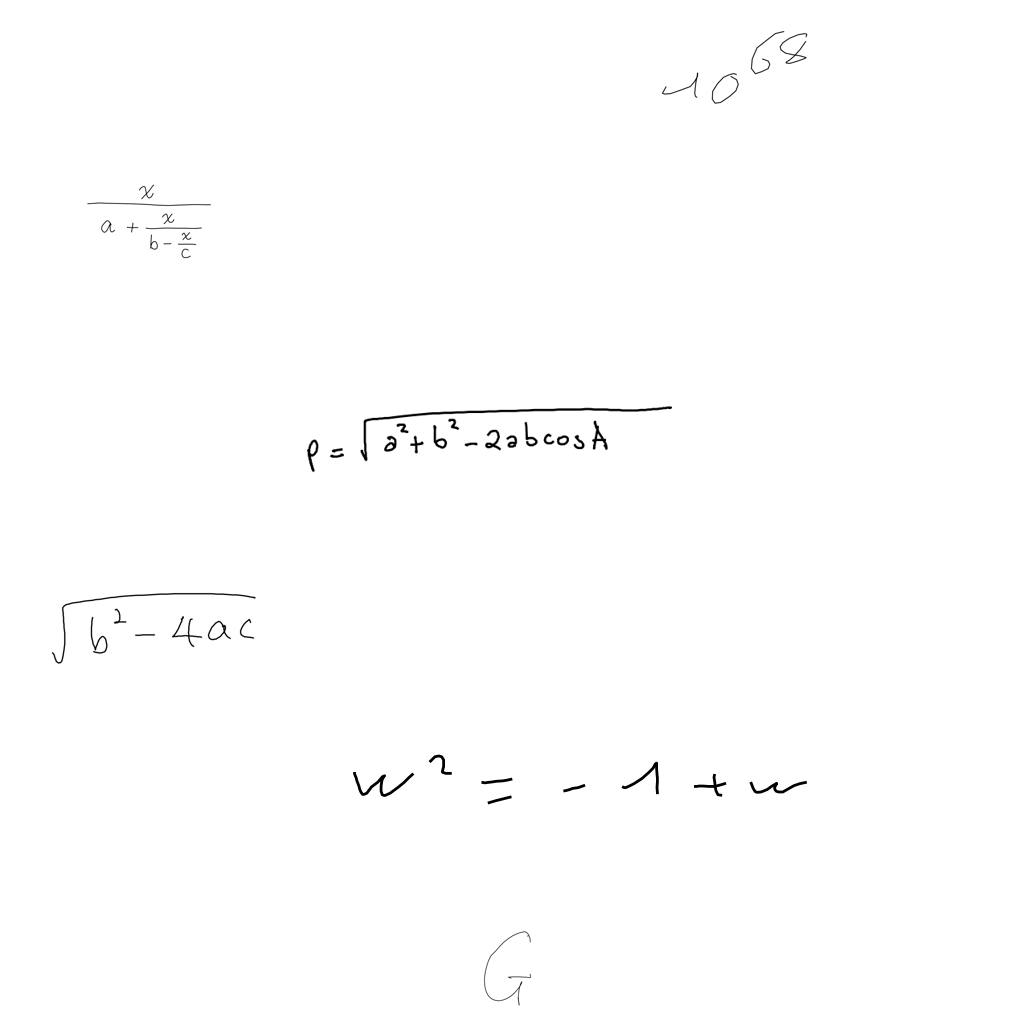 10^{68}
\frac{x}{a+\frac{x}{b-\frac{x}{c}}}
p=\sqrt{a^2+b^2-2abcosA}
\sqrt{b^2-4ac}
w^2=-1+w
G